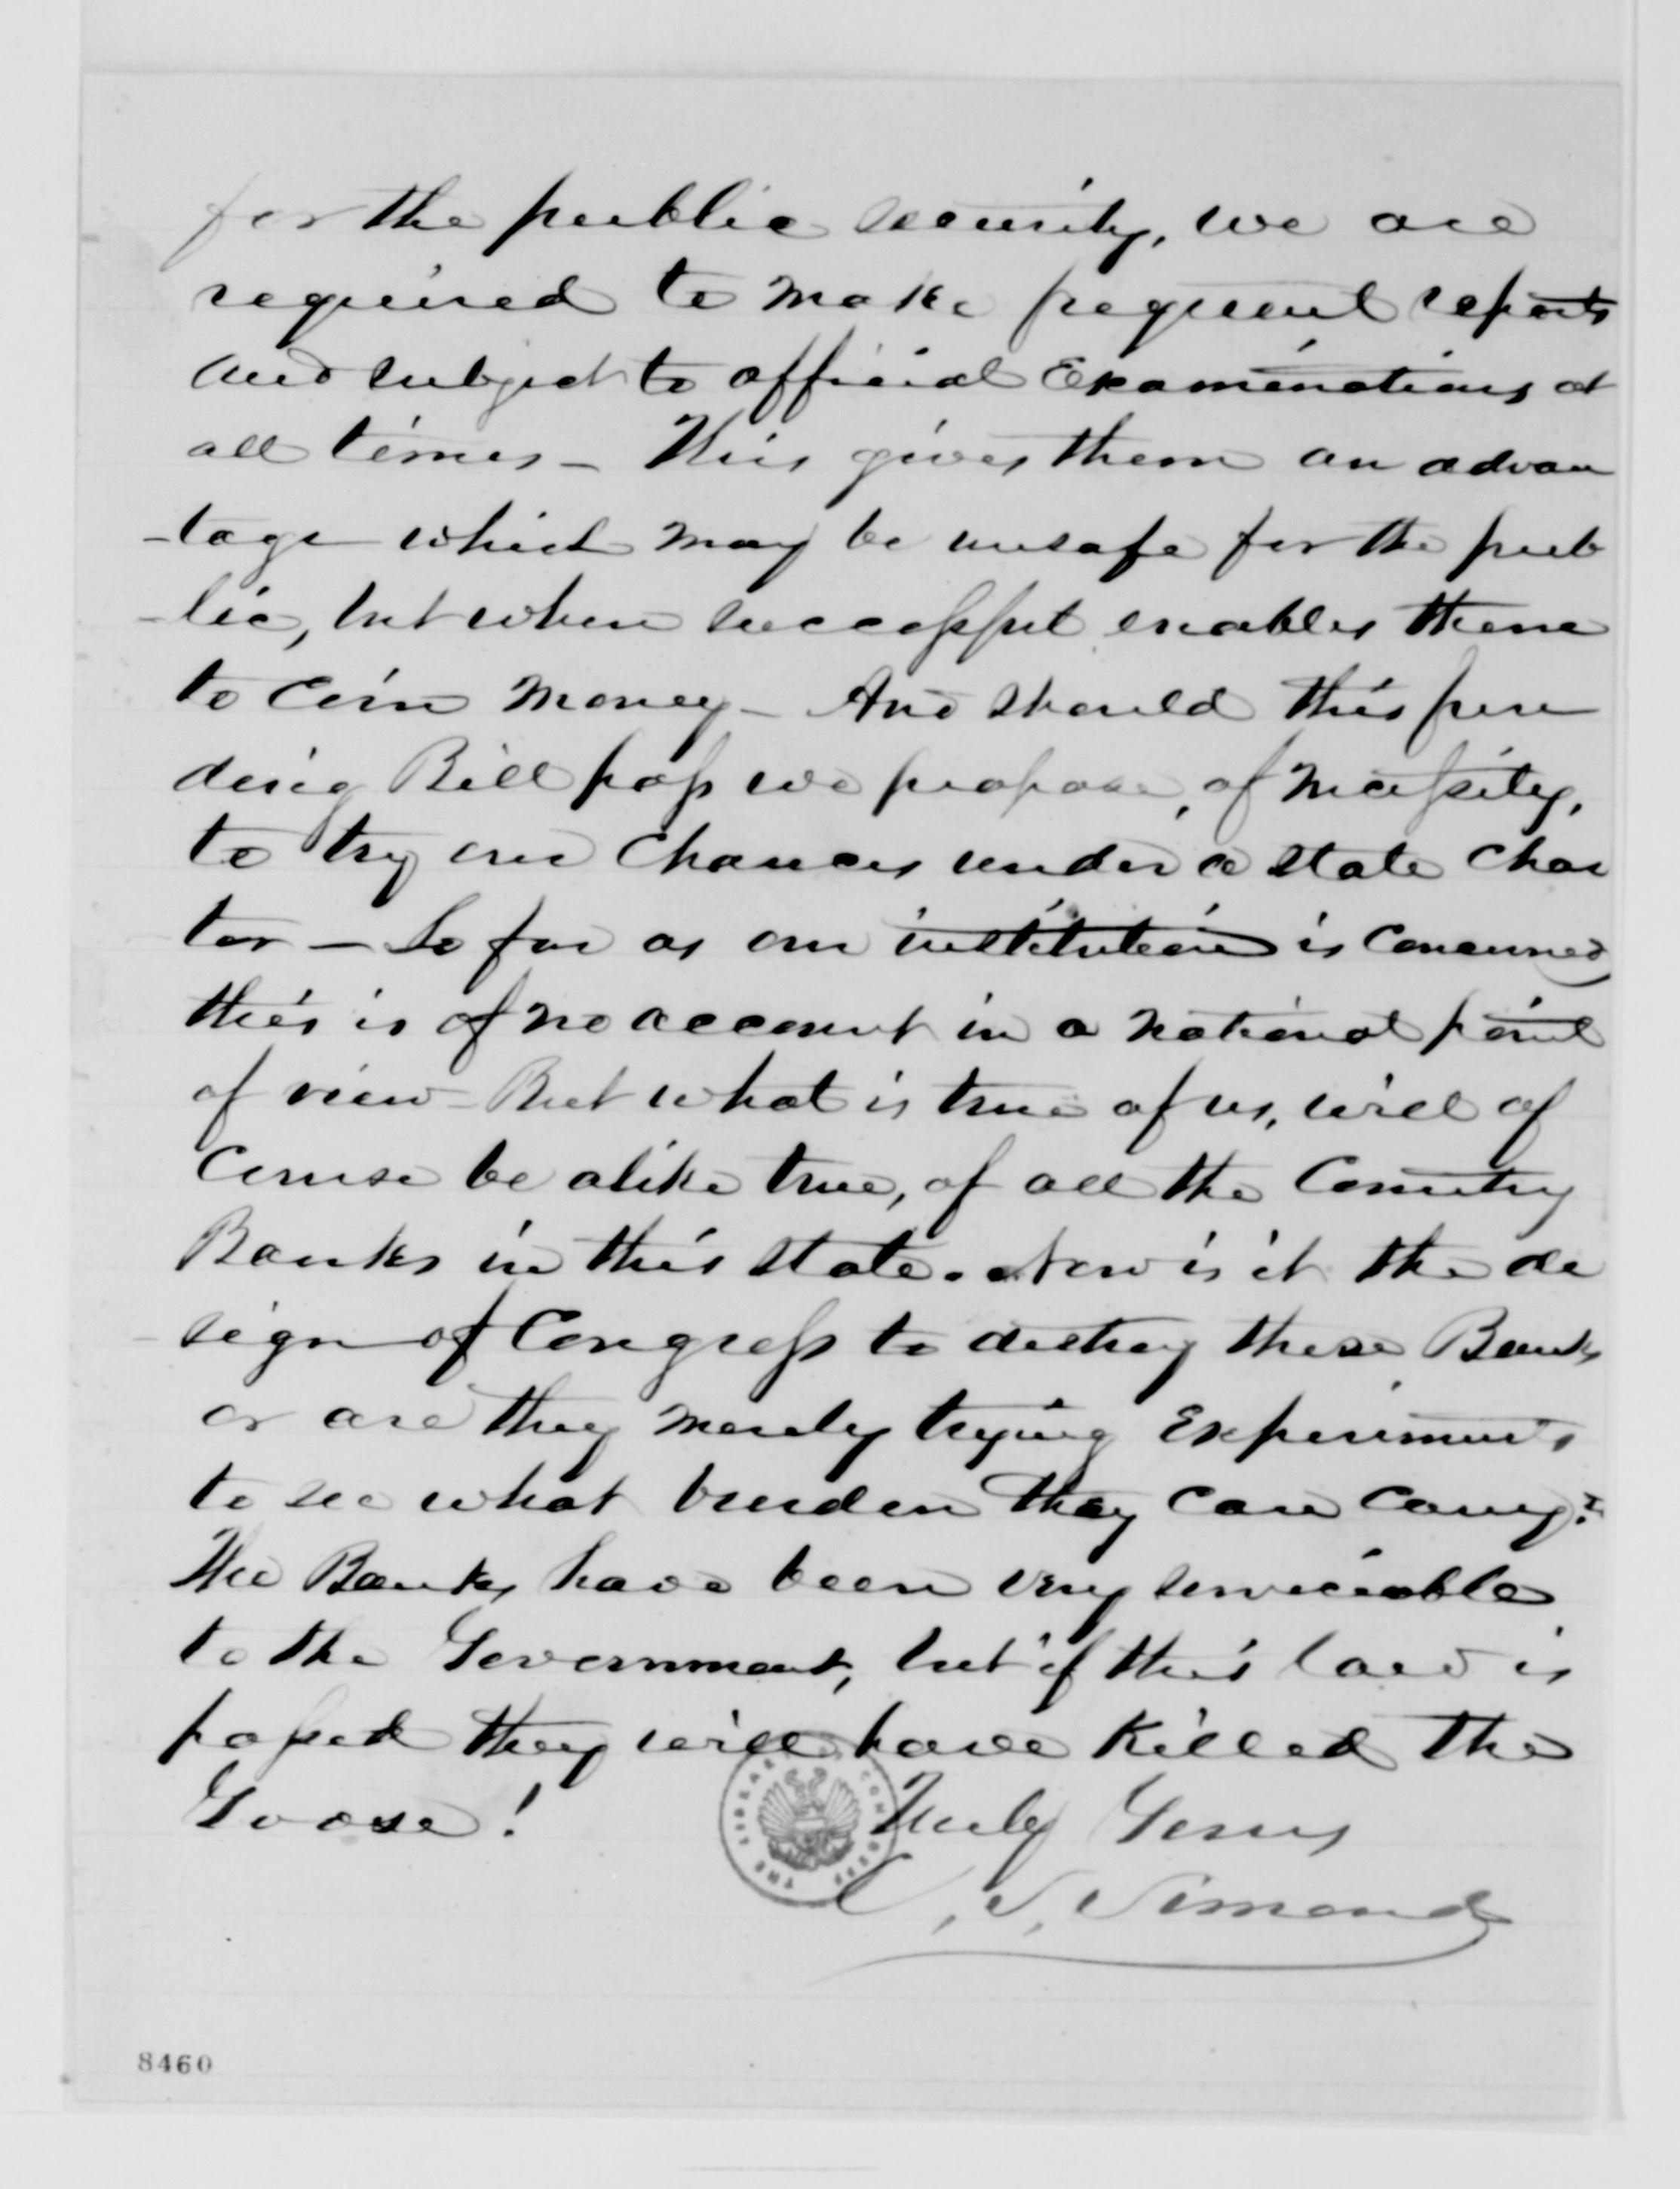 for the public security, we are
required to make frequent reports
and subject to official Examinations at
all times – This gives them an advan
-tage which may be unsafe for the pub
-lic, but when successful enables them
to Coin Money – And should this fun
ding Bill pass we propose, of necessity,
to try our Chances under a state Char
ter – So far as our institution is Concerned
this is of no account in a national point
of view – But what is true of us, will of
Course be alike true, of all the Country
Banks in this state. Now is it the de
-sign of Congress to destroy these Banks
or are they merely trying Experiments
to see what burden they Can Carry?
The Banks have been very serviceable
to the Government, but if this law is
passed they will have Killed the
Goose!
Truly Yours
C. S. Simonds
THE LIBRARY CONGRESS
8460